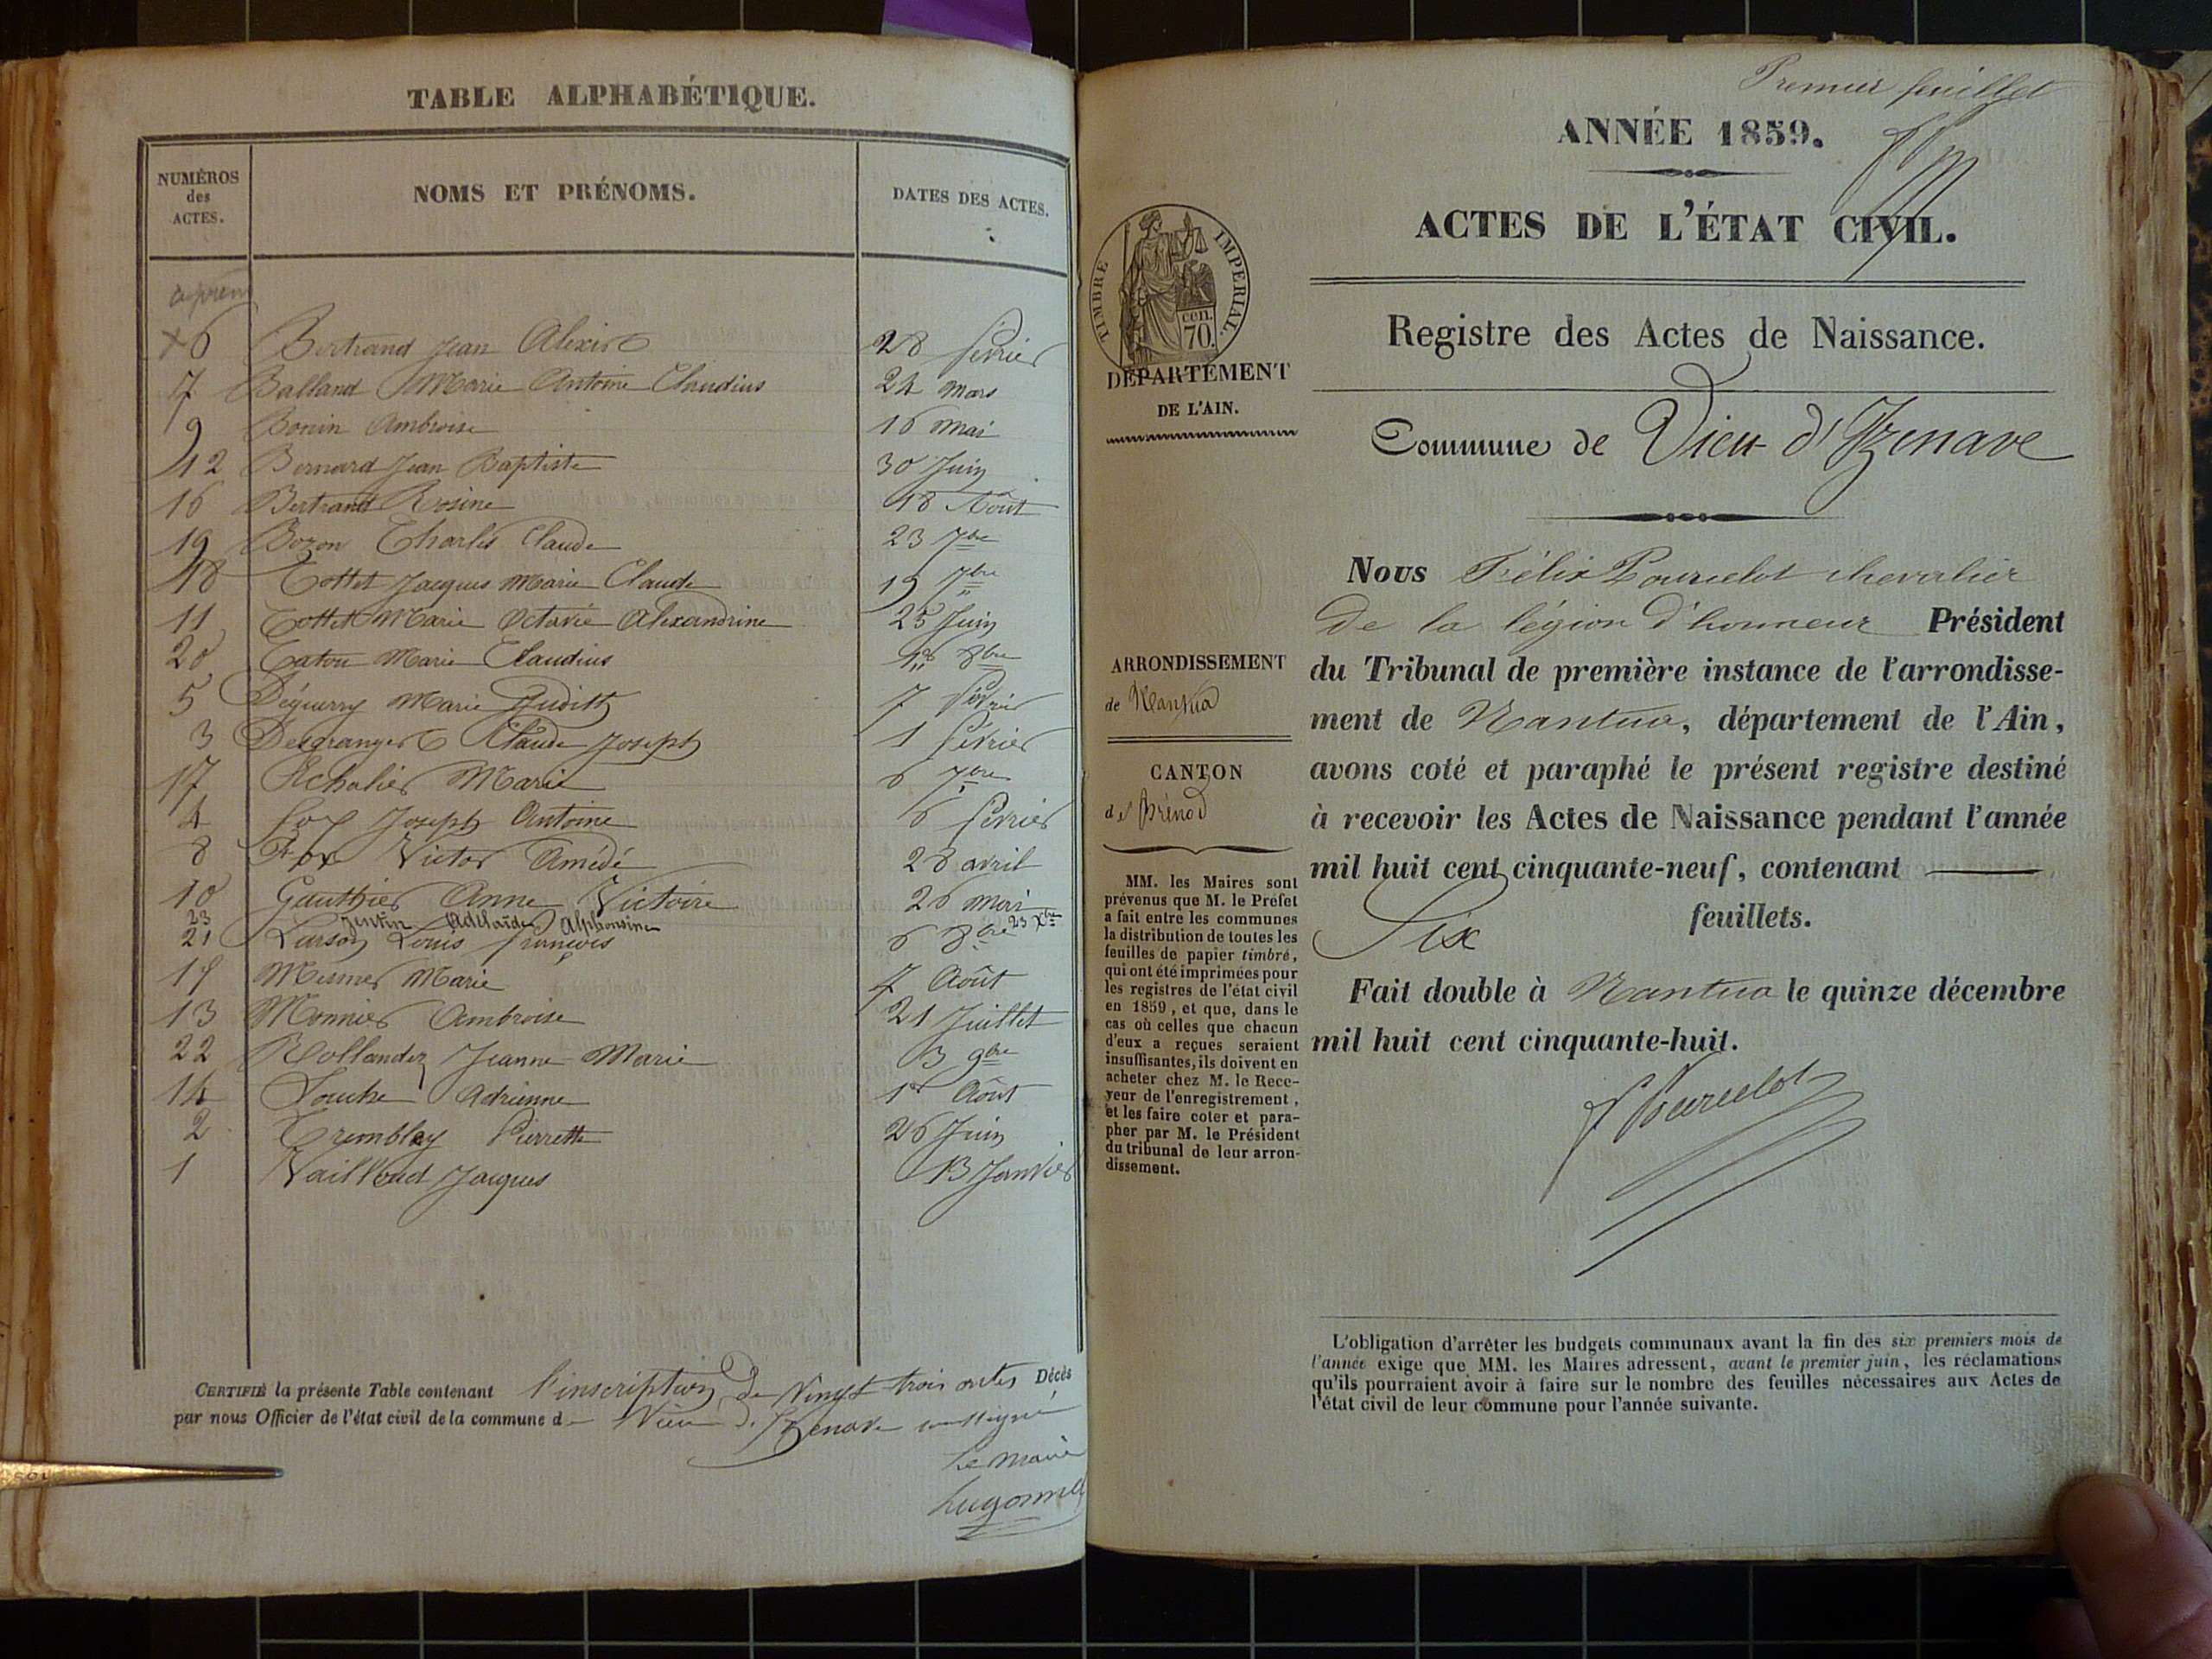 TABLE ALPHABÉTIQUE.
NUMÉROS des ACTES. NOMS ET PRÉNOMS. DATES DES ACTES.
6 Bertrand Jean Alexis 28 février
7 Balland Marie Antoine Claudius 24 mars
9 Bonin Ambroise 16 mai
12 Bernard Jean Baptiste 30 Juin
16 Bertrand Rosine 18 Août
19 Bozon Charles Claude 23 7bre
18 Cottet Jacques Marie Claude 19 7bre
11 Cottet Marie Octavie Alexandrine 25 Juin
20 Marie Claudius 1er 8bre
5 Déguerry Marie Judith 7 février
3 Desgranges Claude Joseph 1 février
17 Echalier Marie 6 7bre
4 Fox Joseph Antoine 6 février
8 Fox Victor Amédé 28 avril
10 Gauthier Anne Victoire 26 mai
23 Jentin Adélaïde Alphonsine 23 Xbre
21 Louis françois 6 8bre
15 Marie 7 Août
13 Monnier Ambroise 21 Juillet
22 Rollandez Jeanne Marie 3 9bre
14 Adrienne 1er Août
2 Tremblay Pierrette 26 Juin
1 Vailloud Jacques 13 Janvier
CERTIFIÉ la présente Table contenant l'inscription de Vingt trois actes Décès
par nous Officier de l'état civil de la commune de Vieu d'Izenave soussigné
Le maire
Premier feuillet
ANNÉE 1859.
ACTES DE L'ÉTAT CIVIL.
TIMBRE IMPERIAL
cen.
70.
Registre des Actes de Naissance.
DÉPARTEMENT
DE L'AIN.
Commune de Vieu d'Izenave
Nous Félix Pourcelot chevalier
de la légion d'honneur Président
du Tribunal de première instance de l'arrondisse-
ment de Nantua, département de l'Ain,
avons coté et paraphé le présent registre destiné
à recevoir les Actes de Naissance pendant l'année
mil huit cent cinquante-neuf, contenant
Six feuillets.
Fait double à Nantua le quinze décembre
mil huit cent cinquante-huit.
F Pourcelot
ARRONDISSEMENT
de Nantua
CANTON
de Brénod
MM. les Maires sont
prévenus que M. le Préfet
a fait entre les communes
la distribution de toutes les
feuilles de papier timbré,
qui ont été imprimées pour
les registres de l'état civil
en 1859, et que, dans le
cas où celles que chacun
d'eux a reçues seraient
insuffisantes, ils doivent en
acheter chez M. le Rece-
veur de l'enregistrement,
et les faire coter et para-
pher par M. le Président
du tribunal de leur arron-
dissement.
L'obligation d'arrêter les budgets communaux avant la fin des six premiers mois de
l'année exige que MM. les Maires adressent, avant le premier juin, les réclamations
qu'ils pourraient avoir à faire sur le nombre des feuilles nécessaires aux Actes de
l'état civil de leur commune pour l'année suivante.